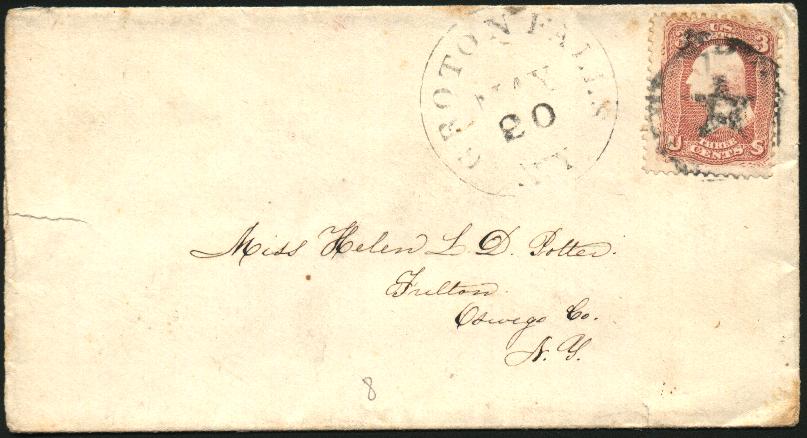 GROTON FALLS
MAY
20
N.Y.
U S
3 3
U S
THREE
CENTS
Miss Helen L. D. Potter.
Fulton.
Oswego Co.
N. Y.
8